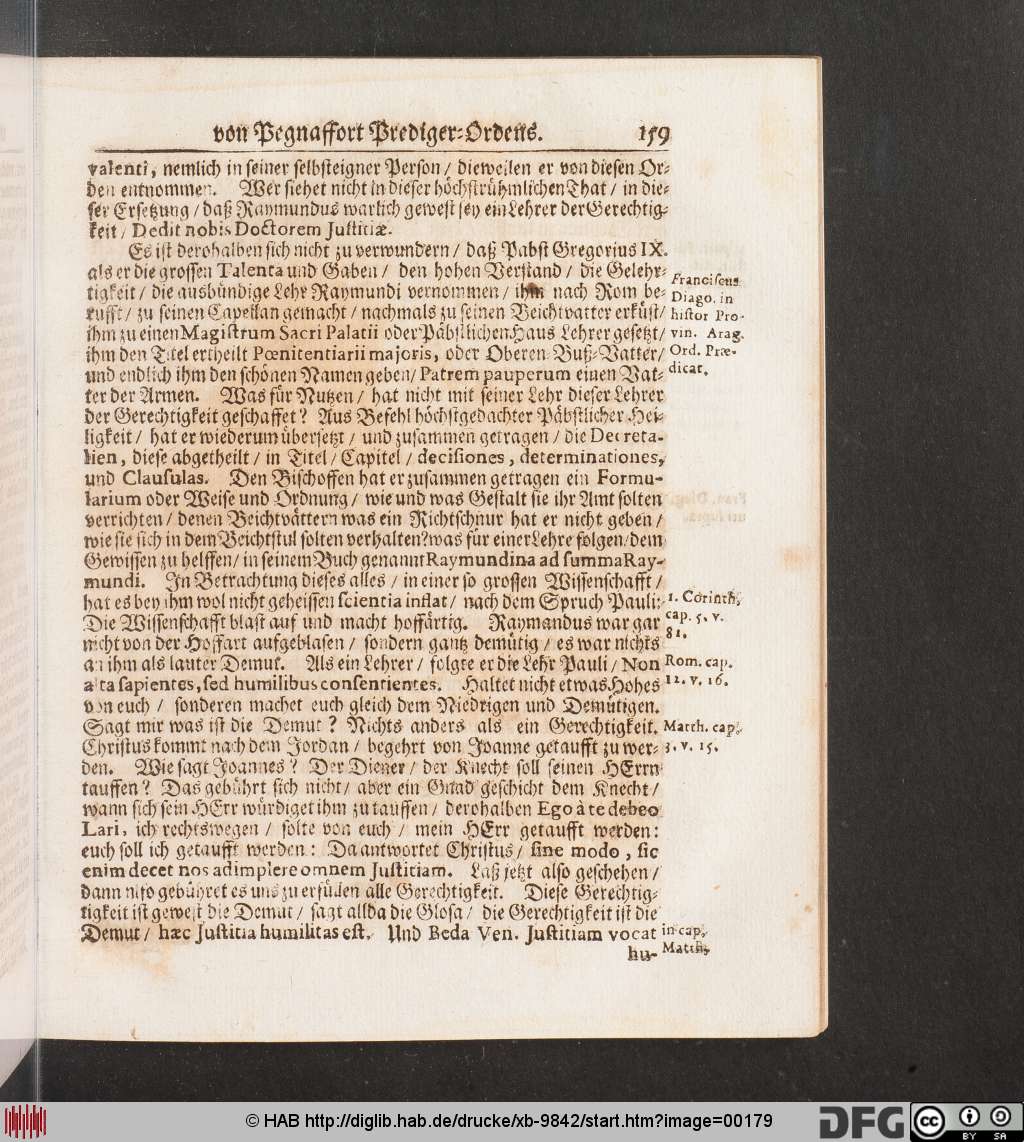 von Pegnaffort Prediger-Ordens. 159
valenti, nemlich in seiner selbsteigner Person / dieweilen er von diesen Or-
den entnommen. Wer siehet nicht in dieser höchstrühmlichen That / in die-
ser Ersetzung / daß Raymundus warlich gewest sey ein Lehrer der Gerechtig-
keit / Dedit nobis Doctorem Justitiæ.
Es ist derohalben sich nicht zu verwundern / daß Pabst Gregorius IX.
als er die grossen Talenta und Gaben / den hohen Verstand / die Gelehr-
tigkeit / die ausbündige Lehr Raymundi vernommen / ihm nach Rom be-
rufft / zu seinen Capellan gemacht / nachmals zu seinen Beichtvatter erküst /
ihm zu einen Magistrum Sacri Palatii oder Päbstlichen Haus Lehrer gesetzt /
ihm den Titel ertheilt Pœnitentiarii majoris, oder Oberen Buß-Vatter /
und endlich ihm den schönen Namen geben / Patrem pauperum einen Vat-
ter der Armen. Was für Nutzen / hat nicht mit seiner Lehr dieser Lehrer
der Gerechtigkeit geschaffet? Aus Befehl höchstgedachter Päbstlicher Hei-
ligkeit / hat er wiederum übersetzt / und zusammen getragen / die Decreta-
lien, diese abgetheilt / in Titel / Capitel / decisiones, determinationes,
und Clausulas. Den Bischoffen hat er zusammen getragen ein Formu-
larium oder Weise und Ordnung / wie und was Gestalt sie ihr Amt solten
verrichten / denen Beichtvättern was ein Richtschnur hat er nicht geben /
wie sie sich in dem Beichtstul solten verhalten? was für einer Lehre folgen / dem
Gewissen zu helffen / in seinem Buch genannt Raymundina ad summa Ray-
mundi. In Betrachtung dieses alles / in einer so grossen Wissenschafft /
hat es bey ihm wol nicht geheissen scientia inflat / nach dem Spruch Pauli:
Die Wissenschafft blast auf und macht hoffärtig. Raymandus war gar
nicht von der Hoffart aufgeblasen / sondern gantz demütig / es war nichts
an ihm als lauter Demut. Als ein Lehrer / folgte er die Lehr Pauli / Non
alta sapientes, sed humilibus consentientes. Haltet nicht etwas Hohes
von euch / sonderen machet euch gleich dem Niedrigen und Demütigen.
Sagt mir was ist die Demut? Nichts anders als ein Gerechtigkeit.
Christus kommt nach dem Jordan / begehrt von Joanne getaufft zu wer-
den. Wie sagt Joannes? Der Diener / der Knecht soll seinen HErrn
tauffen? Das gebührt sich nicht / aber ein Gnad geschicht dem Knecht /
wann sich sein HErr würdiget ihm zu tauffen / derohalben Ego à te debeo
Lari, ich rechtswegen / solte von euch / mein HErr getaufft werden:
euch soll ich getaufft werden: Da antwortet Christus / sine modo, sic
enim decet nos adimplere omnem Justitiam. Laß jetzt also geschehen /
dann also gebühret es uns zu erfüllen alle Gerechtigkeit. Diese Gerechtig-
tigkeit ist gewest die Demut / sagt allda die Glosa / die Gerechtigkeit ist die
Demut / hæc Justitia humilitas est. Und Beda Ven. Justitiam vocat
hu-
Franciscus
Diago. in
histor Pro-
vin. Arag.
Ord. Præ-
dicat.
1. Corinth.
cap. 5. v.
81.
Rom. cap.
12. v. 16.
Matth. cap.
3. v. 15.
in cap.
Matth.
© HAB http://diglib.hab.de/drucke/xb-9842/start.htm?image=00179
DFG
cc
BY SA